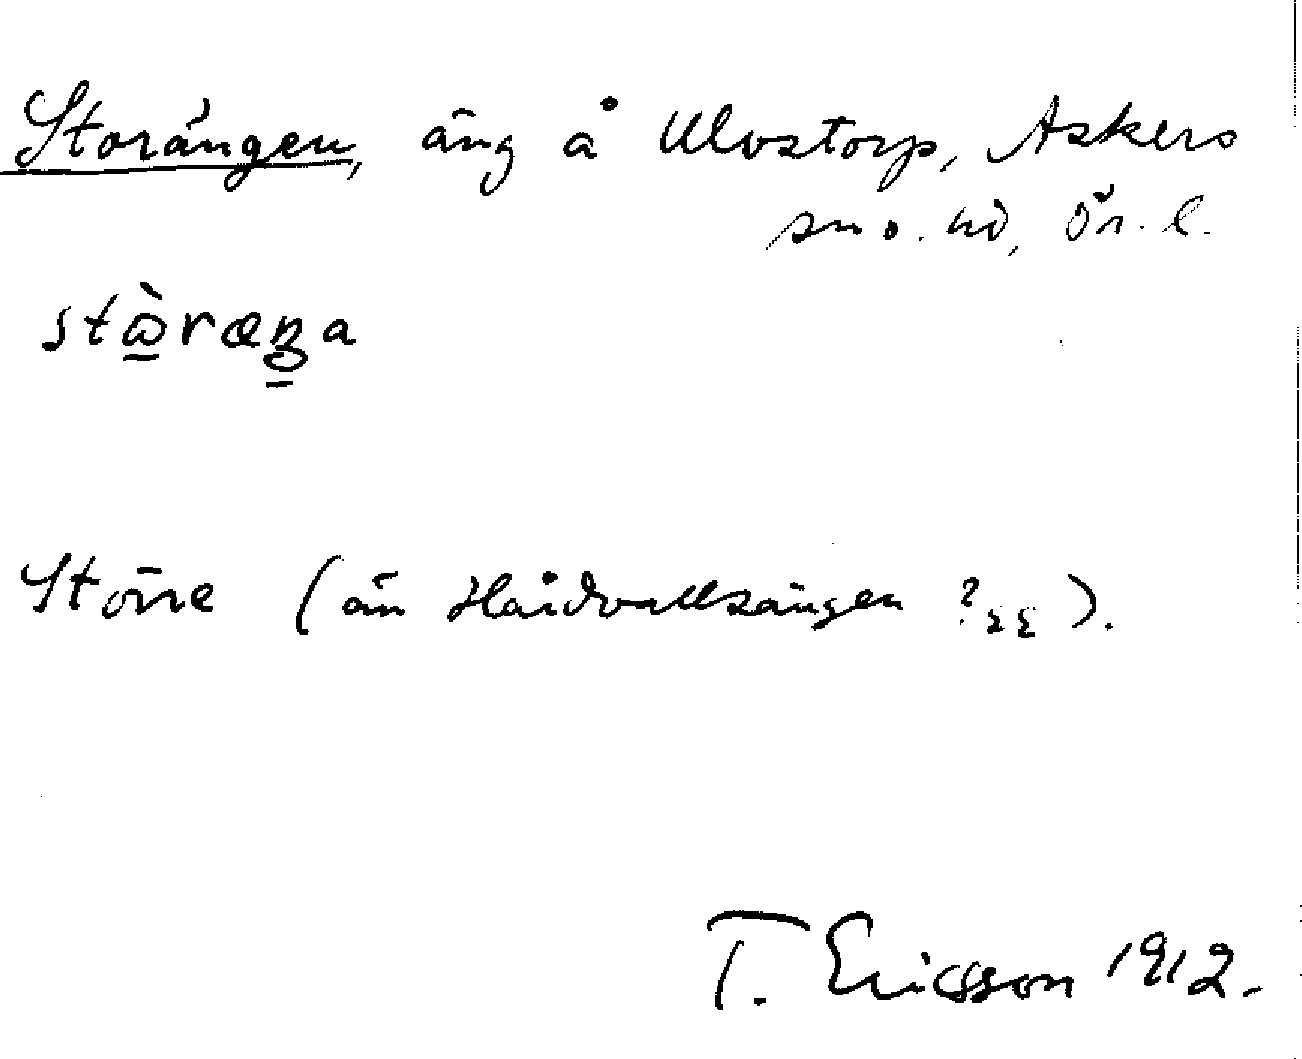 Storängen, äng å Ulvstorp, Askers
sn o. hd, Ör. l.
stὼ̠ræŋa
Större (än Hårdvallsängen ?).
T. Ericsson 1912.